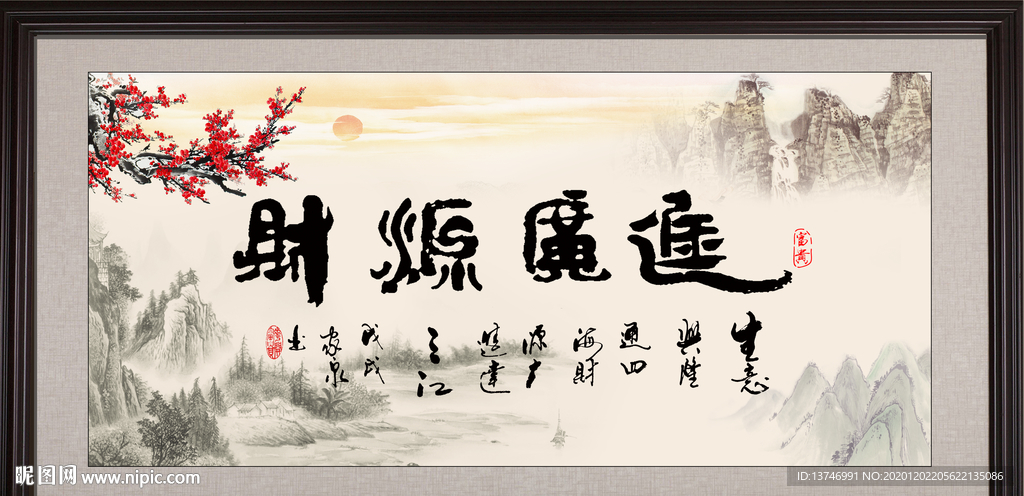 財源廣進
富貴
生意
興隆
通四
海財
源广
進達
三江
戊戌
家泉
书
昵图网 www.nipic.com
ID:13746991 NO:20201202205622135086